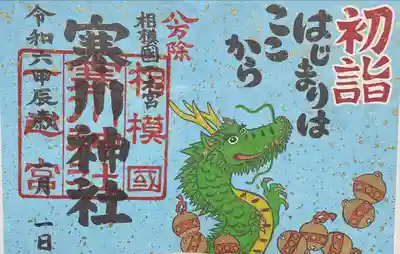 初詣
はじまりは
ここ
から
八方除
相模國一之宮
寒川神社
相模國
一之宮
令和六甲辰歳
一日